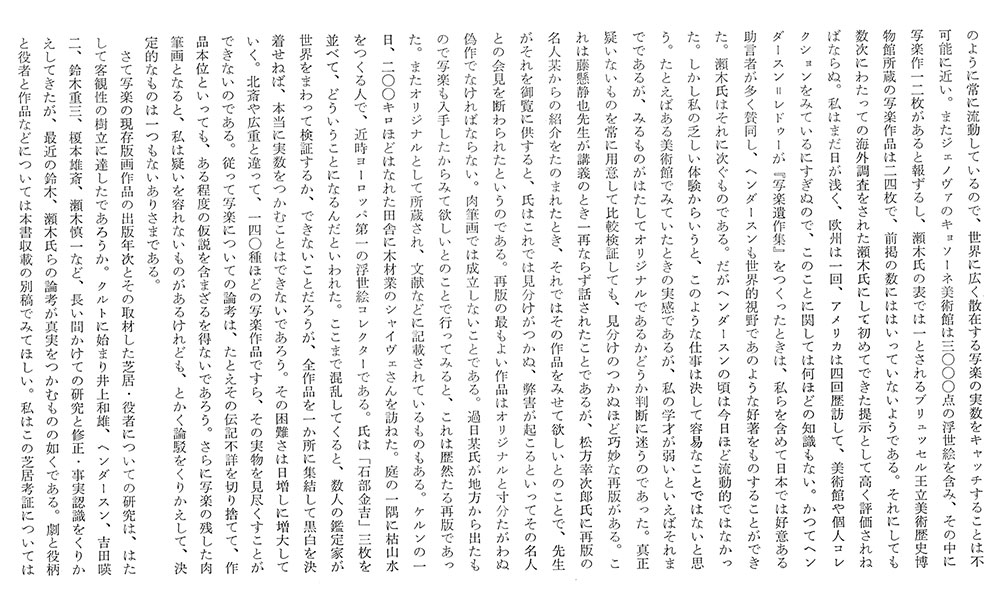 のように常に流動しているので、世界に広く散在する写楽の実数をキャッチすることは不
可能に近い。またジェノヴァのキョソーネ美術館は三〇〇〇点の浮世絵を含み、その中に
写楽作一二枚があると報ずるし、瀬木氏の表では一とされるブリュッセル王立美術歴史博
物館所蔵の写楽作品は二四枚で、前掲の数にははいっていないようである。それにしても
数次にわたっての海外調査をされた瀬木氏にして初めてできた提示として高く評価されね
ばならぬ。私はまだ日が浅く、欧州は一回、アメリカは四回歴訪して、美術館や個人コレ
クションをみているにすぎぬので、このことに関しては何ほどの知識もない。かつてヘン
ダースン＝レドゥーが『写楽遺作集』をつくったときは、私らを含めて日本では好意ある
助言者が多く賛同し、ヘンダースンも世界的視野であのような好著をものすることができ
た。瀬木氏はそれに次ぐものである。だがヘンダースンの頃は今日ほど流動的ではなかっ
た。しかし私の乏しい体験からいうと、このような仕事は決して容易なことではないと思
う。たとえばある美術館でみていたときの実感であるが、私の学才が弱いといえばそれま
でであるが、みるものがはたしてオリジナルであるかどうか判断に迷うのであった。真正
疑いないものを常に用意して比較検証しても、見分けのつかぬほど巧妙な再版がある。こ
れは藤懸静也先生が講義のとき一再ならず話されたことであるが、松方幸次郎氏に再版の
名人某からの紹介をたのまれたとき、それではその作品をみせて欲しいとのことで、先生
がそれを御覧に供すると、氏はこれでは見分けがつかぬ、弊害が起こるといってその名人
との会見を断わられたというのである。再版の最もよい作品はオリジナルと寸分たがわぬ
偽作でなければならない。肉筆画では成立しないことである。過日某氏が地方から出たも
ので写楽も入手したからみて欲しいとのことで行ってみると、これは歴然たる再版であっ
た。またオリジナルとして所蔵され、文献などに記載されているものもある。ケルンの一
日、二〇〇キロほどはなれた田舎に木材業のシャイヴェさんを訪ねた。庭の一隅に枯山水
をつくる人で、近時ヨーロッパ第一の浮世絵コレクターである。氏は「石部金吉」三枚を
並べて、どういうことになるんだといわれた。ここまで混乱してくると、数人の鑑定家が
世界をまわって検証するか、できないことだろうが、全作品を一か所に集結して黒白を決
着せねば、本当に実数をつかむことはできないであろう。その困難さは日増しに増大して
いく。北斎や広重と違って、一四〇種ほどの写楽作品ですら、その実物を見尽くすことが
できないのである。従って写楽についての論考は、たとえその伝記不詳を切り捨てて、作
品本位といっても、ある程度の仮説を含まざるを得ないであろう。さらに写楽の残した肉
筆画となると、私は疑いを容れないものがあるけれども、とかく論駁をくりかえして、決
定的なものは一つもないありさまである。
さて写楽の現存版画作品の出版年次とその取材した芝居・役者についての研究は、はた
して客観性の樹立に達したであろうか。クルトに始まり井上和雄、ヘンダースン、吉田暎
二、鈴木重三、榎本雄斎、瀬木慎一など、長い間かけての研究と修正・事実認識をくりか
えしてきたが、最近の鈴木、瀬木氏らの論考が真実をつかむものの如くである。劇と役柄
と役者と作品などについては本書収載の別稿でみてほしい。私はこの芝居考証については